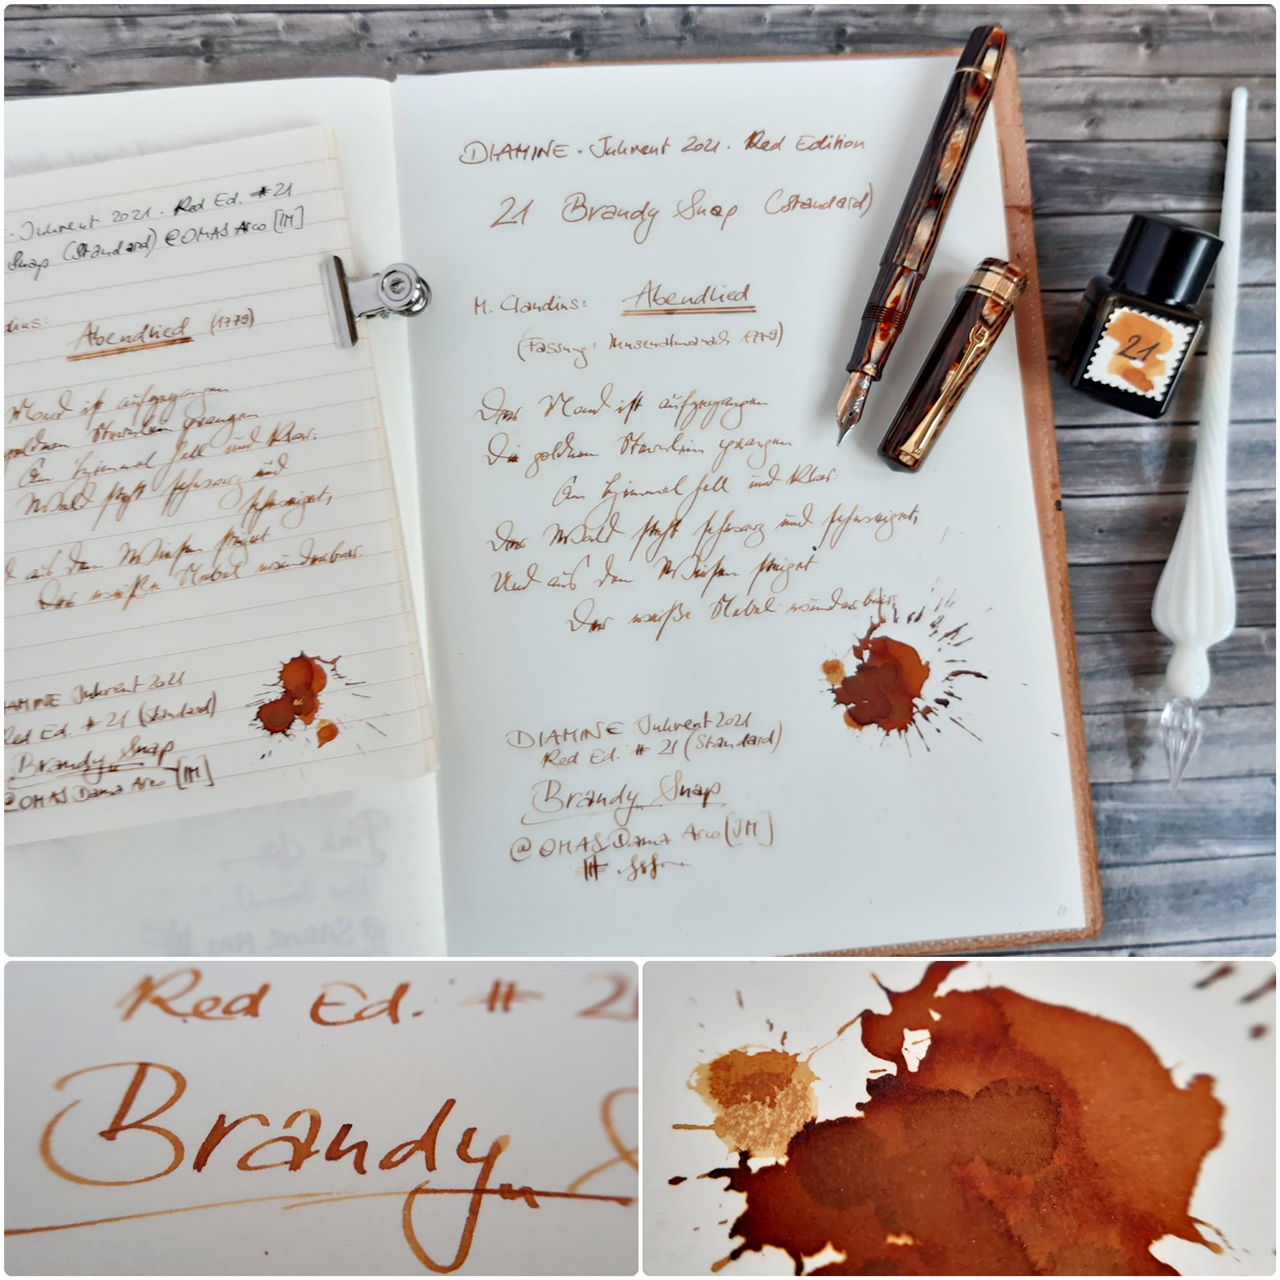 : Inkvent 2021 . Red Ed. #21
Snap (Standard) @OMAS Arco [M]
dius:
Abendlied (1779)
Mond ist aufgegangen
goldnen Sternlein prangen
Am Himmel hell und klar:
Wald steht schwarz und
schweiget,
d aus den Wiesen steiget
Der weiße Nebel wunderbar.
AMINE Inkvent 2021
Red Ed. #21 (Standard)
Brandy Snap
@OMAS Dama Arco [M]
DIAMINE . Inkvent 2021 . Red Edition
21 Brandy Snap (Standard)
M. Claudius: Abendlied
(Fassung: Musenalmanach 1779)
Der Mond ist aufgegangen
Die goldnen Sternlein prangen
Am Himmel hell und klar:
Der Wald steht schwarz und schweiget,
Und aus den Wiesen steiget
Der weiße Nebel wunderbar.
DIAMINE Inkvent 2021
Red Ed. # 21 (Standard)
Brandy Snap
@ OMAS Dama Arco [M]
21
Red Ed. # 21
Brandy